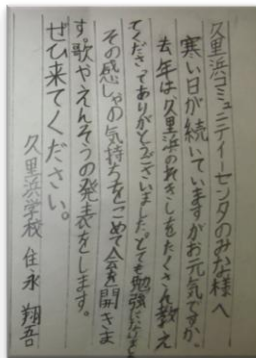 久里浜コミュニティーセンタのみな様へ
寒い日が続いていますがお元気ですか。
去年は、久里浜のれきしをたくさん教え
てくださってありがとうございました。とても勉強になりました
その感しゃの気持ちをこめて会を開きま
す。歌やえんそうの発表をします。
ぜひ来てください。
久里浜学校 住永 翔吾